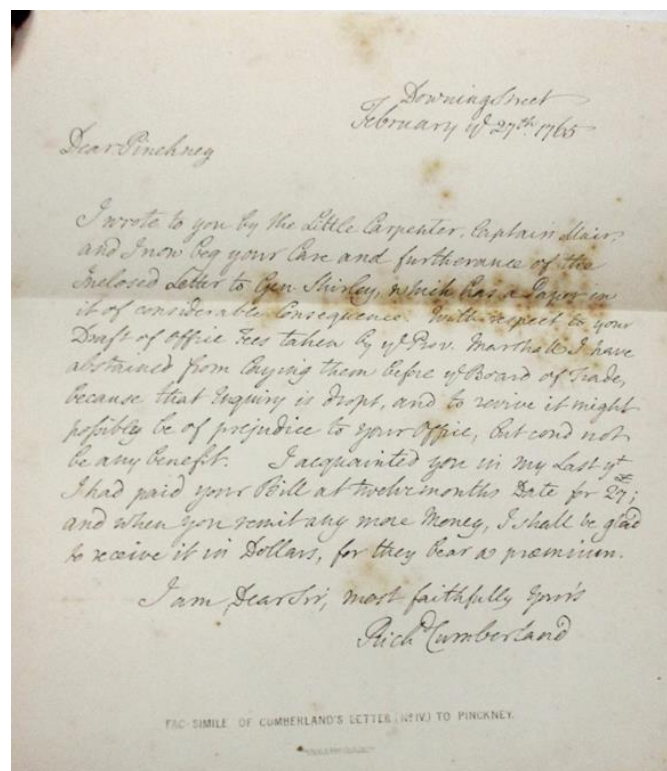 Downing Street
February yᵉ 27th. 1765
Dear Pinckney
I wrote to you by the Little Carpenter, Captain Mair,
and I now beg your Care and furtherance of the
Inclosed Letter to Gen Shirley, which has a Paper in
it of considerable Consequence. With respect to your
Draft of Office Fees taken by yᵉ Prov. Marshall I have
abstained from laying them before yᵉ Board of Trade,
because that Inquiry is dropt, and to revive it might
possibly be of prejudice to your Office, but coud not
be any benefit. I acquainted you in my Last yᵗ
I had paid your Bill at twelve months Date for 27;
and when you remit any more Money, I shall be glad
to receive it in Dollars, for they bear a præmium.
I am, Dear Sir, most faithfully Your's
Richᵈ Cumberland
FAC-SIMILE OF CUMBERLAND'S LETTER (Nº IV.) TO PINCKNEY.